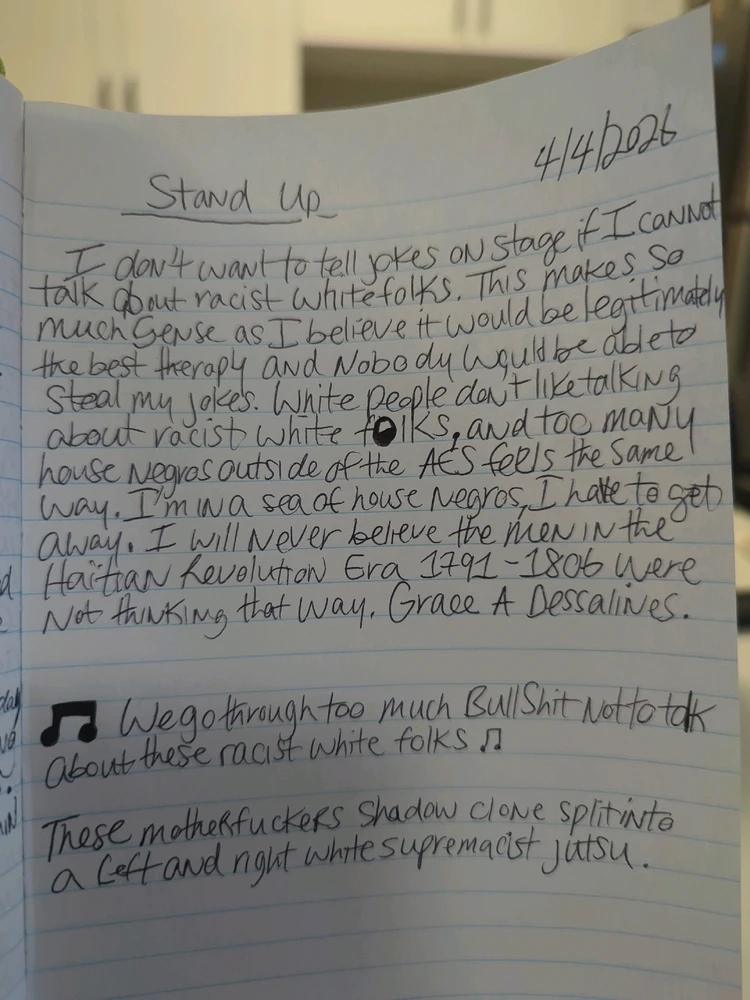 4/4/2026
Stand Up
I don't want to tell jokes on stage if I cannot
talk about racist white folks. This makes so
much sense as I believe it would be legitimately
the best therapy and Nobody would be able to
Steal my jokes. White people don't like talking
about racist white folks, and too many
house negros outside of the AES feels the same
way. I'm in a sea of house negros, I have to get
away. I will never believe the men in the
Haïtian Revolution Era 1791-1806 were
Not thinking that way. Grace A Dessalines.
♫ We go through too much BullShit Not to talk
About these racist white folks ♫
These motherfuckers shadow clone split into
a left and right white supremacist jutsu.